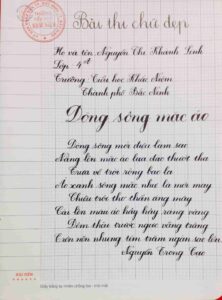 Bài thi chữ đẹp
Họ và tên: Nguyễn Thị Khánh Linh
Lớp 4
Trường Tiểu học Khắc Niệm
Thành phố Bắc Ninh
Dòng sông mặc áo
Dòng sông mới điệu làm sao
Nắng lên mặc áo lụa đào thướt tha
Trưa về trời rộng bao la
Áo xanh sông mặc như là mới may
Chiều trôi thơ thẩn áng mây
Cài lên màu áo hây hây ráng vàng
Đêm thêu trước ngực vầng trăng
Trên nền nhung tím trăm ngàn sao lên.
Nguyễn Trọng Tạo